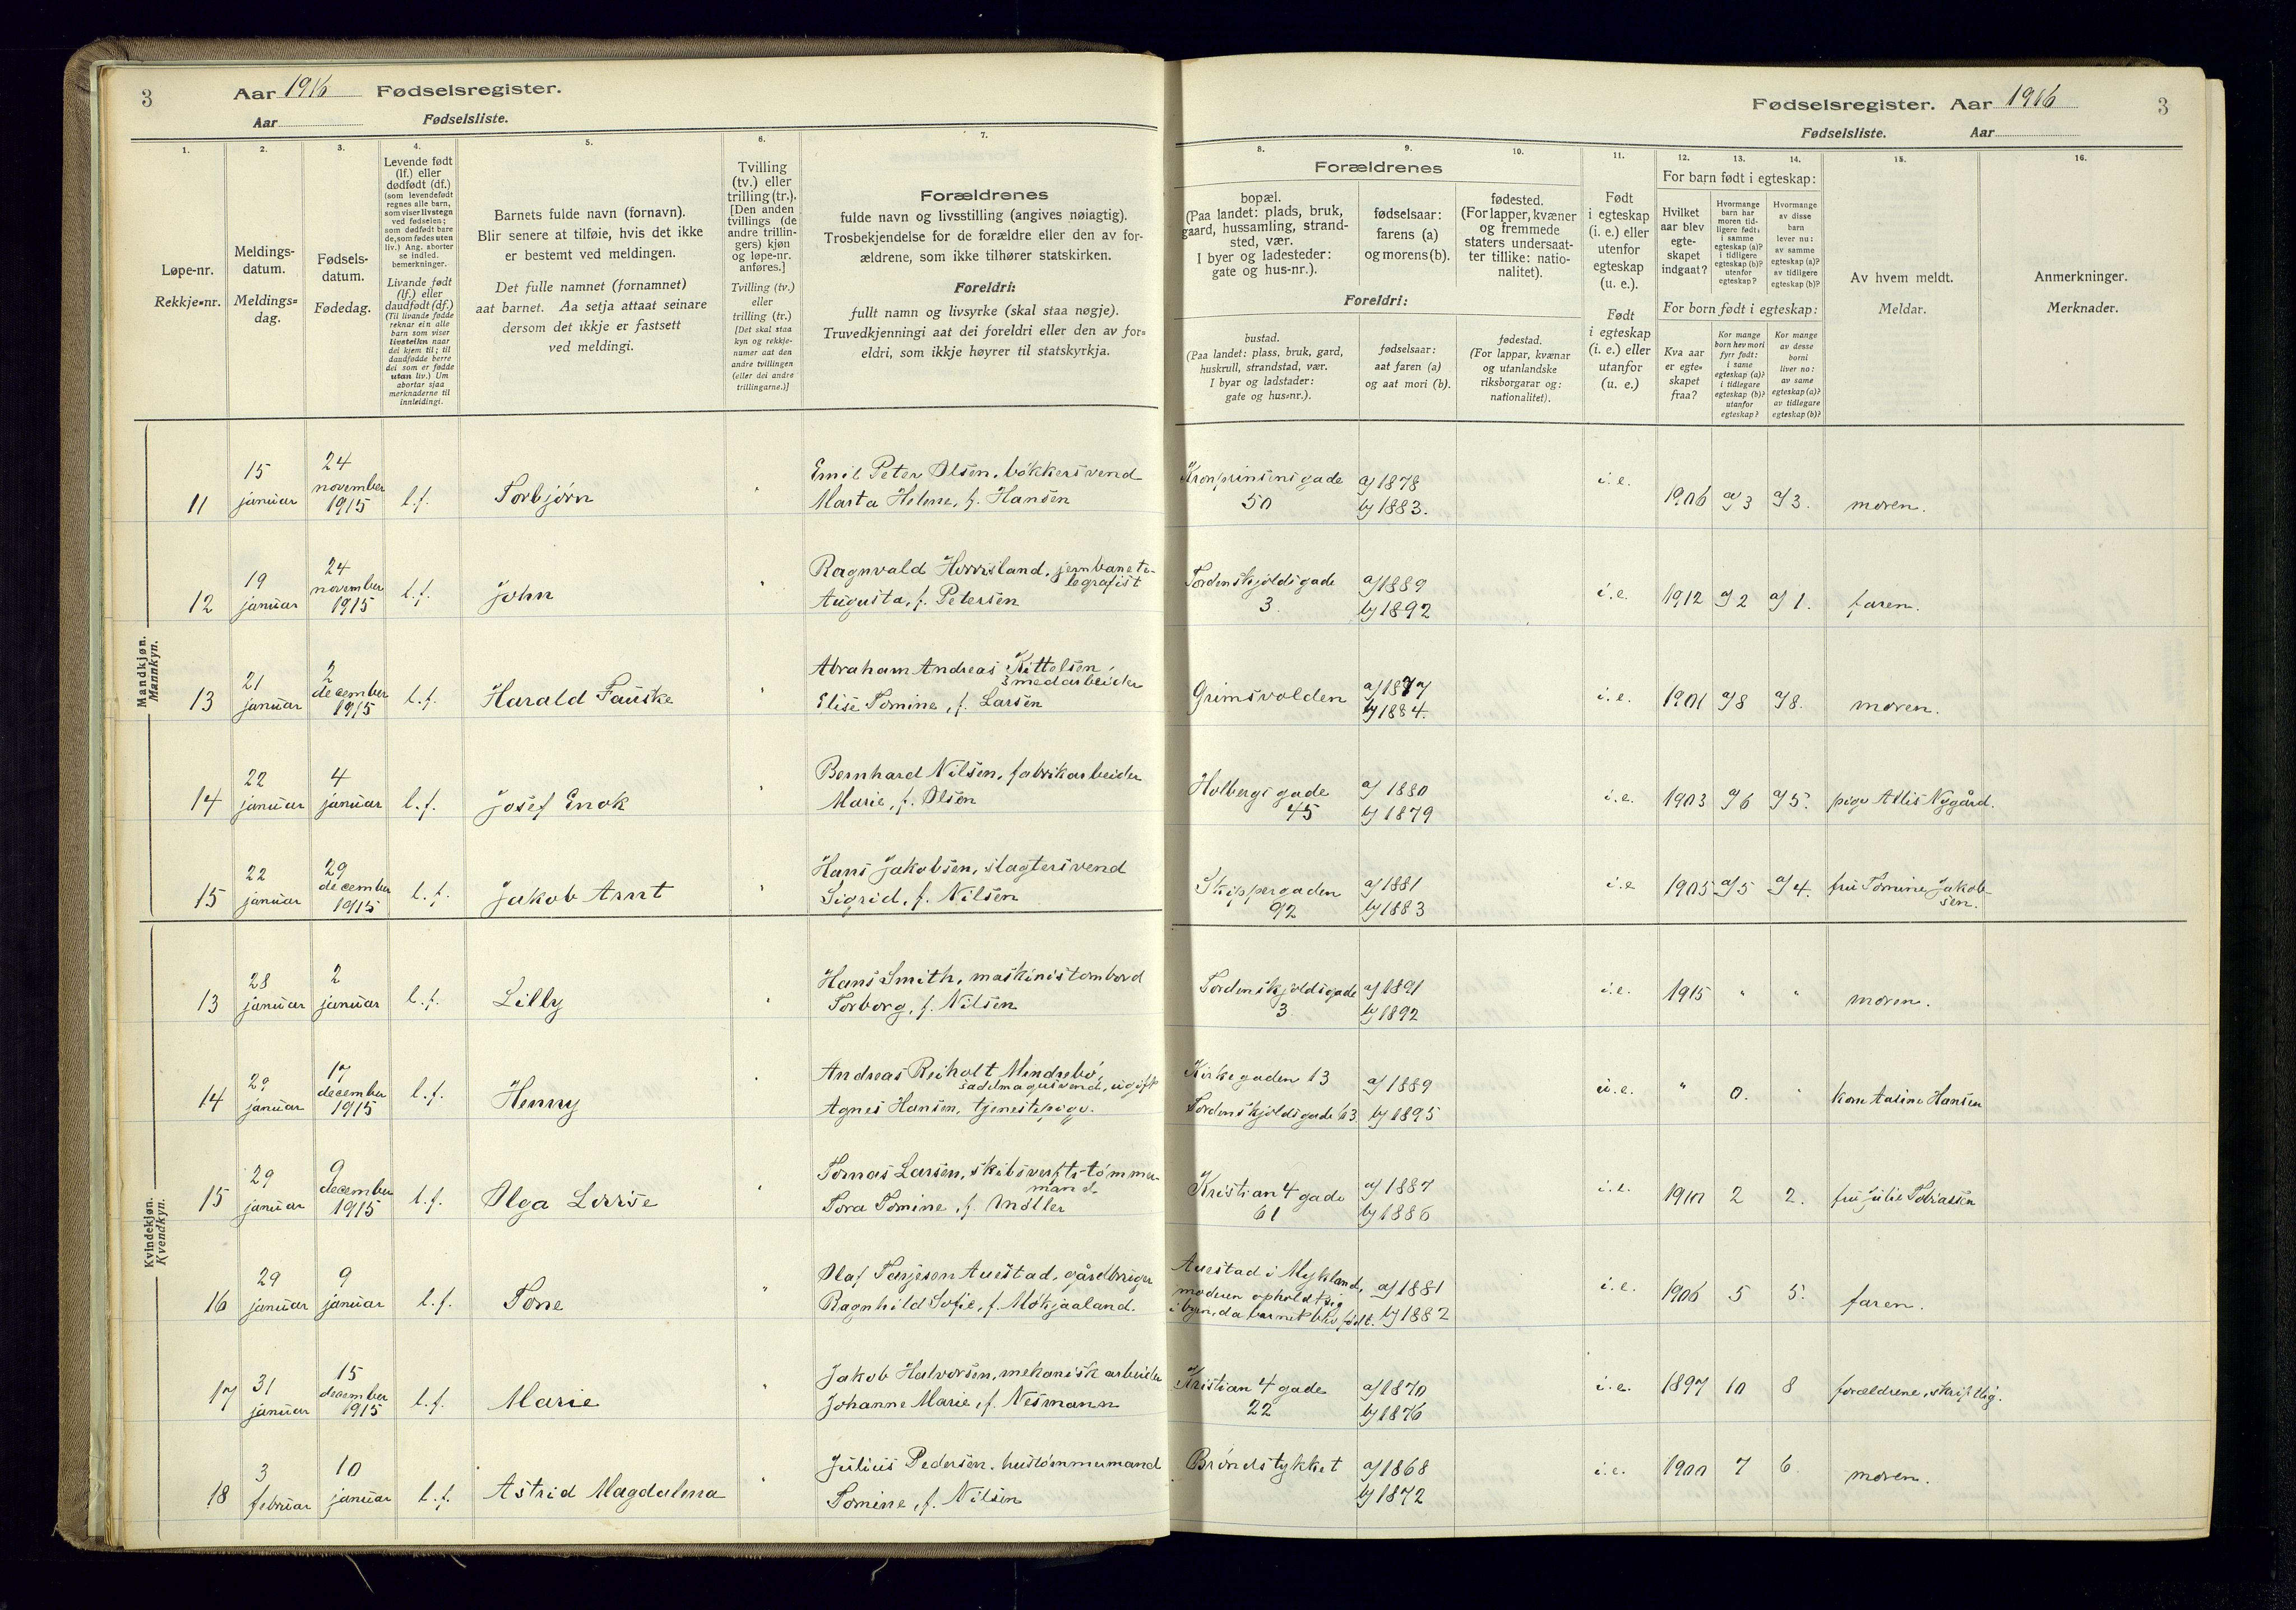 3
Aar 1916 Fødselsregister.
Aar Fødselsliste.
1.
2.
3.
4.
5.
6.
7.
Løpe-nr.
Rekkje-nr.
Meldings-
datum.
Meldings-
dag.
Fødsels-
datum.
Fødedag.
Levende født
(lf.) eller
dødfødt (df.)
(som levendefødt
regnes alle barn,
som viser livstegn
ved fødselen;
som dødfødt bare
de, som fødes uten
liv.) Ang. aborter
se indled.
bemerkninger.
Livande født
(lf.) eller
daudfødt (df.)
(Til livande fødde
reknar ein alle
barn som viser
livsteikn naar
dei kjem til; til
daudfødde berre
dei som er fødde
utan liv.) Um
abortar sjaa
merknaderne til
innleidingi.
Barnets fulde navn (fornavn).
Blir senere at tilføie, hvis det ikke
er bestemt ved meldingen.
Det fulle namnet (fornamnet)
aat barnet. Aa setja attaat seinare
dersom det ikkje er fastsett
ved meldingi.
Tvilling
(tv.) eller
trilling (tr.).
[Den anden
tvillings (de
andre trillin-
gers) kjøn
og løpe-nr.
anføres.]
Tvilling (tv.)
eller
trilling (tr.)
[Det skal staa
kyn og rekkje-
numer aat den
andre tvillingen
(eller dei andre
trillingarne.)]
Forældrenes
fulde navn og livsstilling (angives nøiagtig).
Trosbekjendelse for de forældre eller den av for-
ældrene, som ikke tilhører statskirken.
Foreldri:
fullt namn og livsyrke (skal staa nøgje).
Truvedkjenningi aat dei foreldri eller den av for-
eldri, som ikkje høyrer til statskyrkja.
Mandkjøn.
Mannkyn.
11
15
januar
24
november
1915
l.f.
Torbjörn
"
Emil Peter Olsen, bökkersvend
Marta Helene, f. Hansen
12
19
januar
24
november
1915
l.f.
John
"
Ragnvald Horrisland, jernbanete-
legrafist
Augusta, f. Petersen
13
21
januar
2
december
1915
l.f.
Harald Fauske
"
Abraham Andreas Kittelsen,
smedarbeider
Elise Tomine, f. Larsen
14
22
januar
4
januar
l.f.
Josef Enok
"
Bernhard Nilsen, fabrikarbeider
Marie, f. Olsen
15
22
januar
29
december
1915
l.f.
Jakob Arnt
"
Hans Jakobsen, slagtersvend
Sigrid, f. Nilsen
Kvindekjøn.
Kvendkyn.
13
28
januar
2
januar
l.f.
Lilly
"
Hans Smith, maskinist ombord
Torborg, f. Nilsen
14
29
januar
17
december
1915
l.f.
Henny
"
Andreas Reiholt Mindrebö,
sadelmagersvend, ugift
Agnes Hansen, tjenestepige.
15
29
januar
9
december
1915
l.f.
Olga Lovise
"
Tomas Larsen, skibsverfts-tömmer-
mand
Tora Tomine, f. Möller
16
29
januar
9
januar
l.f.
Tone
"
Olaf Tarjeson Auestad, gårdbruger
Ragnhild Sofie, f. Mökjaaland.
17
31
januar
15
december
1915
l.f.
Marie
"
Jakob Halvorsen, mekanisk arbeider
Johanne Marie, f. Nesmann
18
3
februar
10
januar
l.f.
Astrid Magdalena
"
Julius Pedersen, hustömmermand
Tomine, f. Nilsen
Fødselsregister. Aar 1916
3
Fødselsliste. Aar
8.
9.
10.
11.
12.
13.
14.
15.
16.
Forældrenes
bopæl.
(Paa landet: plads, bruk,
gaard, hussamling, strand-
sted, vær.
I byer og ladesteder:
gate og hus-nr.).
fødselsaar:
farens (a)
og morens (b).
fødested.
(For lapper, kvæner
og fremmede
staters undersaat-
ter tillike: natio-
nalitet).
Foreldri:
bustad.
(Paa landet: plass, bruk, gard,
huskrull, strandstad, vær.
I byar og ladstader:
gate og hus-nr.).
fødselsaar:
aat faren (a)
og aat mori (b).
fødestad.
(For lappar, kvænar
og utanlandske
riksborgarar og:
nationalitet).
Født
i egteskap
(i. e.) eller
utenfor
egteskap
(u. e.).
Født
i egteskap
(i. e.) eller
utanfor
(u. e.)
For barn født i egteskap:
Hvilket
aar blev
egte-
skapet
indgaat?
Hvormange
barn har
moren tid-
ligere født:
i samme
egteskap (a)?
i tidligere
egteskap (b)?
utenfor
egteskap?
Hvormange
av disse
barn
lever nu:
av samme
egteskap (a)?
av tidligere
egteskap (b)?
For born født i egteskap:
Kva aar
er egte-
skapet
fraa?
Kor mange
born hev mori
fyrr født:
i same
egteskap (a)?
i tidlegare
egteskap (b)?
utanfor
egteskap?
Kor mange
av desse
borni
liver no:
av same
egteskap (a)?
av tidlegare
egteskap (b)?
Av hvem meldt.
Meldar.
Anmerkninger.
Merknader.
Kronprinsensgade
50
a/ 1878
b/ 1883.
i.e.
1906
a/ 3
a/ 3.
moren.
Tordenskjoldsgade
3.
a/ 1889
b/ 1892
i.e.
1912
a/ 2
a/ 1.
faren.
Grimsvolden
a/ 1877
b/ 1884.
i.e.
1901
a/ 8
a/ 8.
moren.
Holbergsgade
45
a/ 1880
b/ 1879
i.e.
1903
a/ 6
a/ 5.
pige Allis Nygård.
Skippergaden
92
a/ 1881
b/ 1883
i.e
1905
a/ 5
a/ 4.
fru Tomine Jakob-
sen.
Tordenskjoldsgade
3
a/ 1891
b/ 1892
i.e.
1915
"
"
moren.
Kirkegaden 13
Tordenskjoldsgade 63
a/ 1889
b/ 1895
u.e.
"
0.
"
kone Aasine Hansen
Kristian 4 gade
61
a/ 1887
b/ 1886
i.e.
1910
2
2.
fru Julie Tobiassen
Auestad i Mykland,
moderen opholdt sig
i byen, da barnet blev födt.
a/ 1881
b/ 1882
i.e.
1906
5
5.
faren.
Kristian 4 gade
22
a/ 1870
b/ 1876
i.e.
1897
10
8
forældrene, skriftlig.
Bröndstykket
a/ 1868
b/ 1872
i.e.
1900
7
6.
moren.